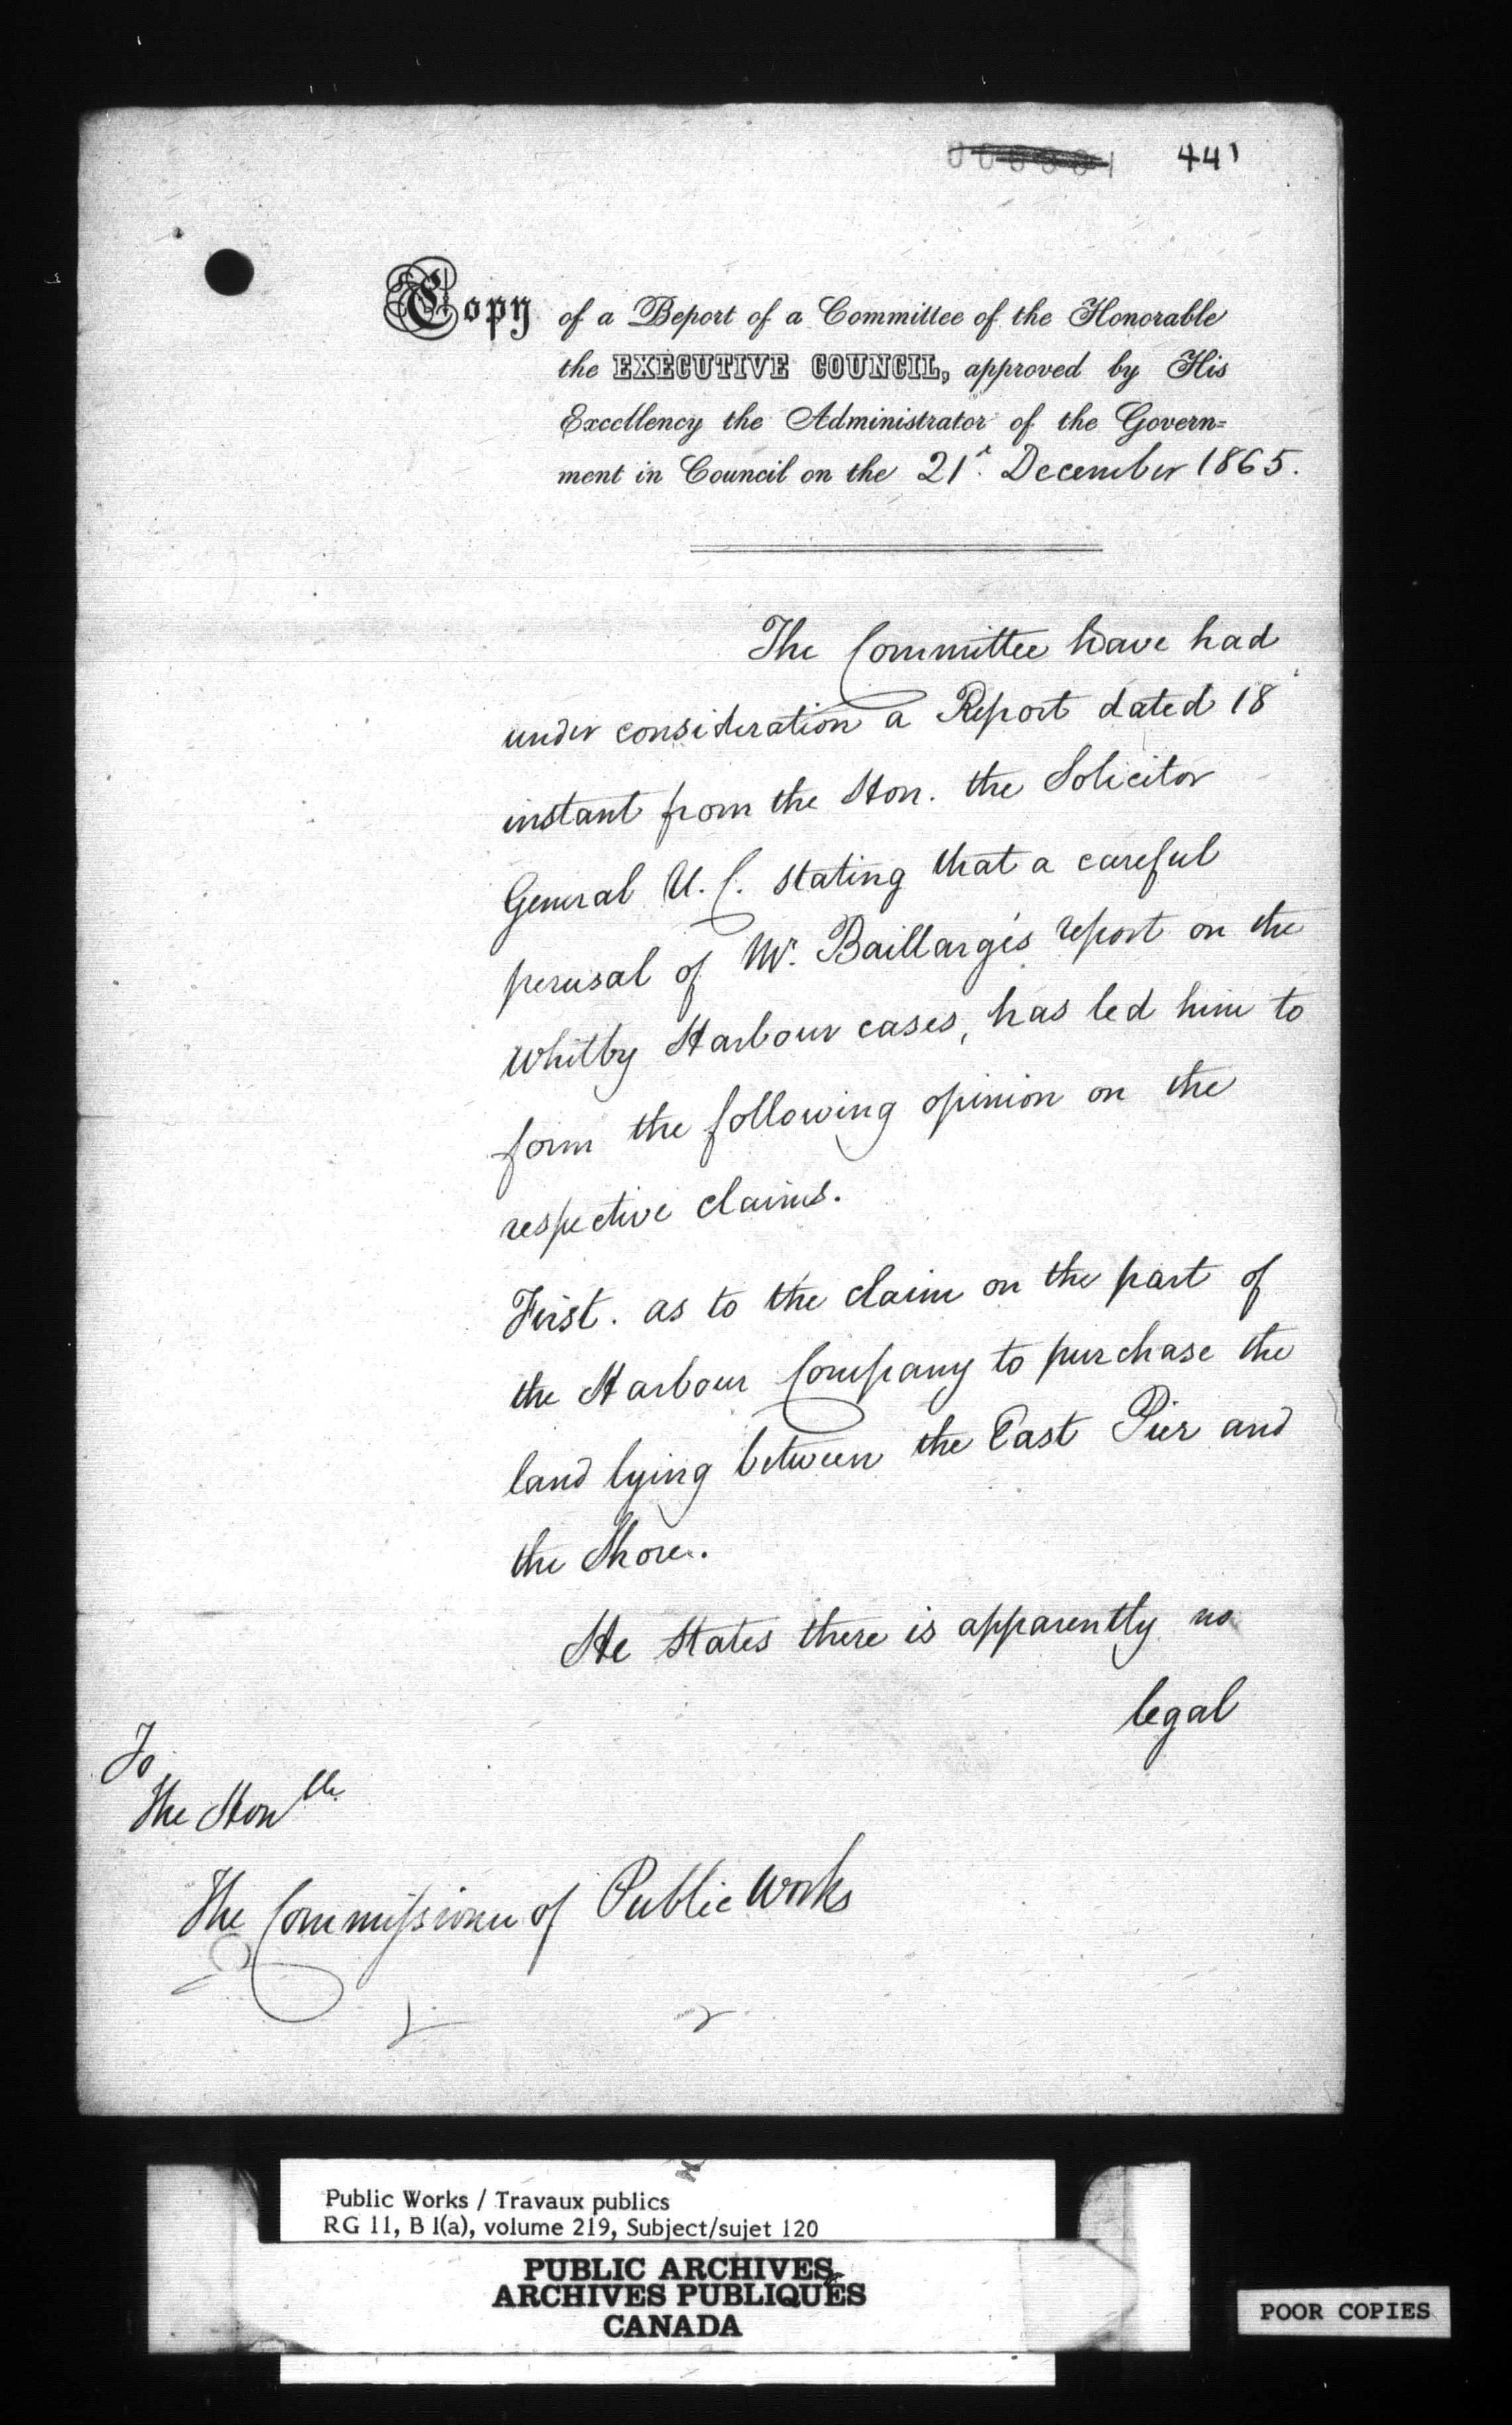 441
Copy of a Report of a Committee of the Honorable
the EXECUTIVE COUNCIL, approved by His
Excellency the Administrator of the Govern=
ment in Council on the 21st. December 1865.
The Committee have had
under consideration a Report dated 18
instant from the Hon. the Solicitor
General U. C. stating that a careful
perusal of Mr. Baillargé's report on the
Whitby Harbour cases, has led him to
form the following opinion on the
respective claims.
First. as to the claim on the part of
the Harbour Company to purchase the
land lying between the East Pier and
the Shore.
He states there is apparently no
legal
To
The Honble.
The Commissioner of Public Works
Public Works / Travaux publics
RG 11, B 1(a), volume 219, Subject/sujet 120
PUBLIC ARCHIVES
ARCHIVES PUBLIQUES
CANADA
POOR COPIES